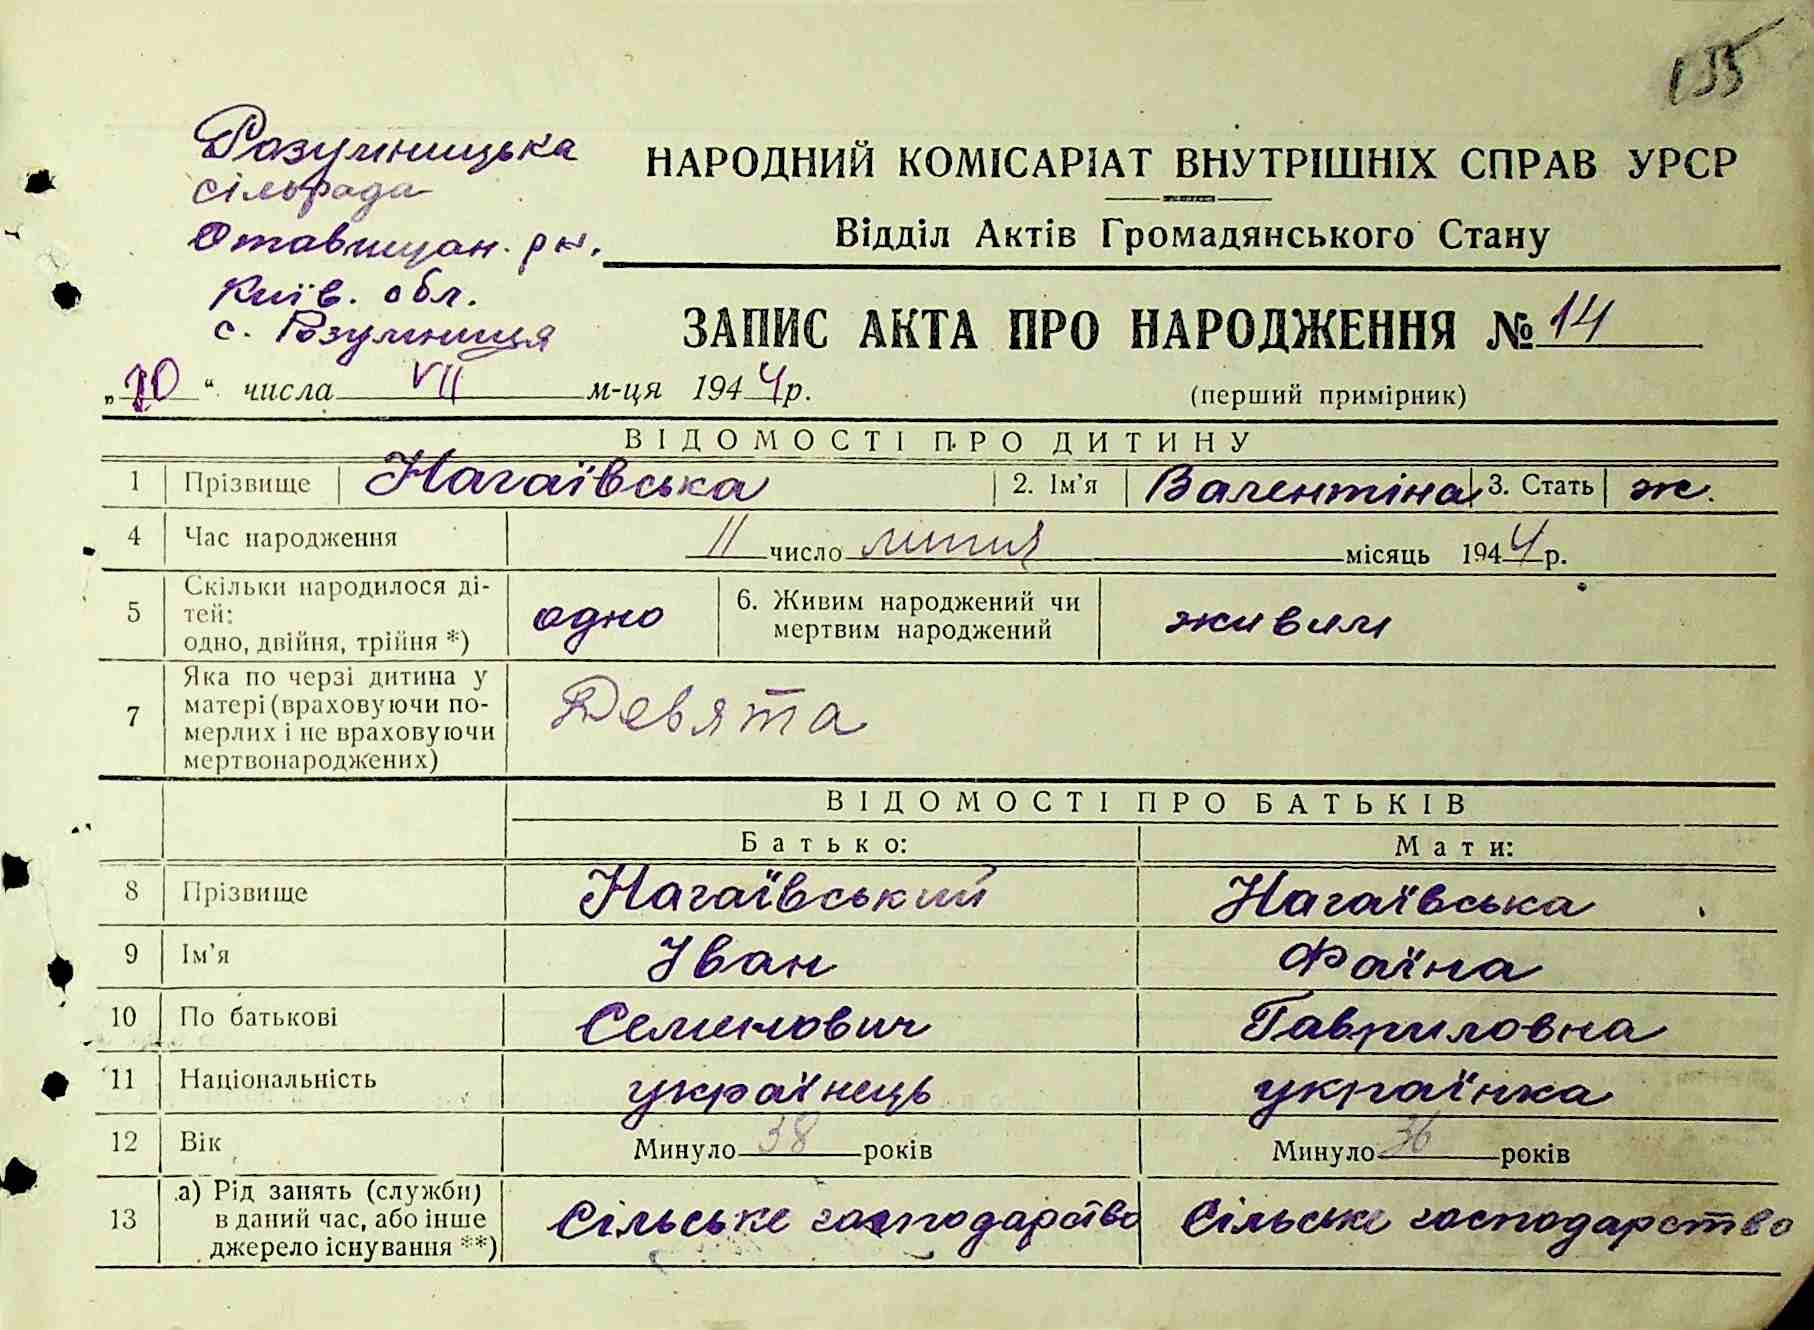 155
Розумницька
сільрада
Ставищан. рн.
Київ. обл.
с. Розумниця
НАРОДНИЙ КОМІСАРІАТ ВНУТРІШНІХ СПРАВ УРСР
Відділ Актів Громадянського Стану
ЗАПИС АКТА ПРО НАРОДЖЕННЯ № 14
(перший примірник)
„20“ числа VII м-ця 1944 р.
ВІДОМОСТІ ПРО ДИТИНУ
1 Прізвище Нагаївська 2. Ім'я Валентіна 3. Стать ж.
4 Час народження 11 число липня місяць 1944 р.
5 Скільки народилося ді-
тей:
одно, двійня, трійня *) одно 6. Живим народжений чи
мертвим народжений живим
7 Яка по черзі дитина у
матері (враховуючи по-
мерлих і не враховуючи
мертвонароджених) Девята
ВІДОМОСТІ ПРО БАТЬКІВ
Батько: Мати:
8 Прізвище Нагаївський Нагаївська
9 Ім'я Іван Фаїна
10 По батькові Семенович Гавриловна
11 Національність українець українка
12 Вік Минуло 38 років Минуло 36 років
13 а) Рід занять (служби)
в даний час, або інше
джерело існування **) Сільське господарство Сільське господарство